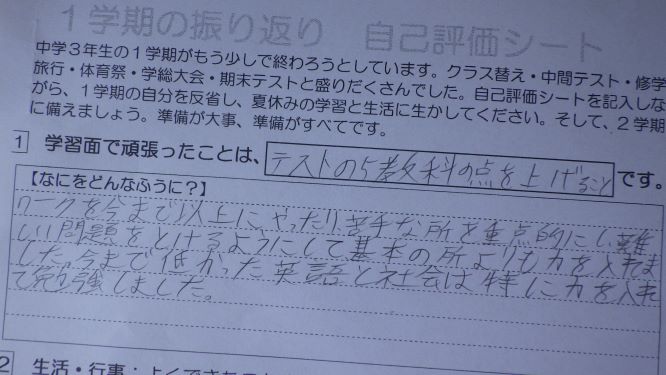 1学期の振り返り 自己評価シート
中学3年生の1学期がもう少しで終わろうとしています。クラス替え・中間テスト・修学
旅行・体育祭・学総大会・期末テストと盛りだくさんでした。自己評価シートを記入しな
がら、1学期の自分を反省し、夏休みの学習と生活に生かしてください。そして、2学期
に備えましょう。準備が大事、準備がすべてです。
1 学習面で頑張ったことは、テストの5教科の点を上げること です。
【なにをどんなふうに?】
ワークを今まで以上にやったり苦手な所を重点的にし、難
しい問題をとけるようにして基本の所よりも力を入れま
した。今まで低かった英語と社会は特に力を入れ
て勉強しました。
2 生活・行事:よくできたこ